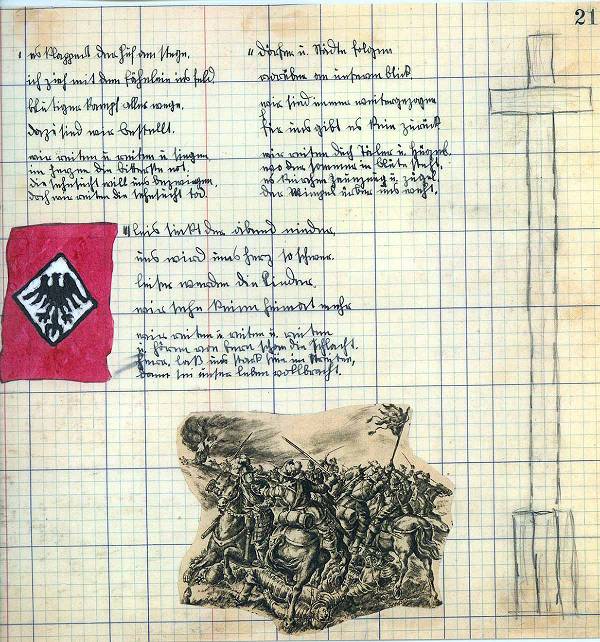 21
I es klappert der Huf am Stege,
ich zieh mit dem Fähnlein ins Feld
blutiger Kampf aller wege,
dazu sind wir bestellt.
wir reiten u reiten u singen
im herzen die bitterste not.
die sehnsucht will uns bezwingen,
doch wir reiten die sehnsucht tod.
II dörfer u. Städte folgen
vorüber an unsern blick
wir sind immer weitergezogen
für uns gibt es kein zurück
wir reiten durch Täler u. hügel
wo der sommer in blüte steht.
es knirschen zaumzeug u. zügel
der Wimpel über uns weht.
III leis sinkt der abend nieder,
uns wird uns herz so schwer.
leiser werden die Lieder,
wir sehn keine heimat mehr
wir reiten u reiten u. reiten
u. hören von fern schon die Schlacht.
herr, laß uns stark sein im streiten,
dann sei unser leben vollbracht.